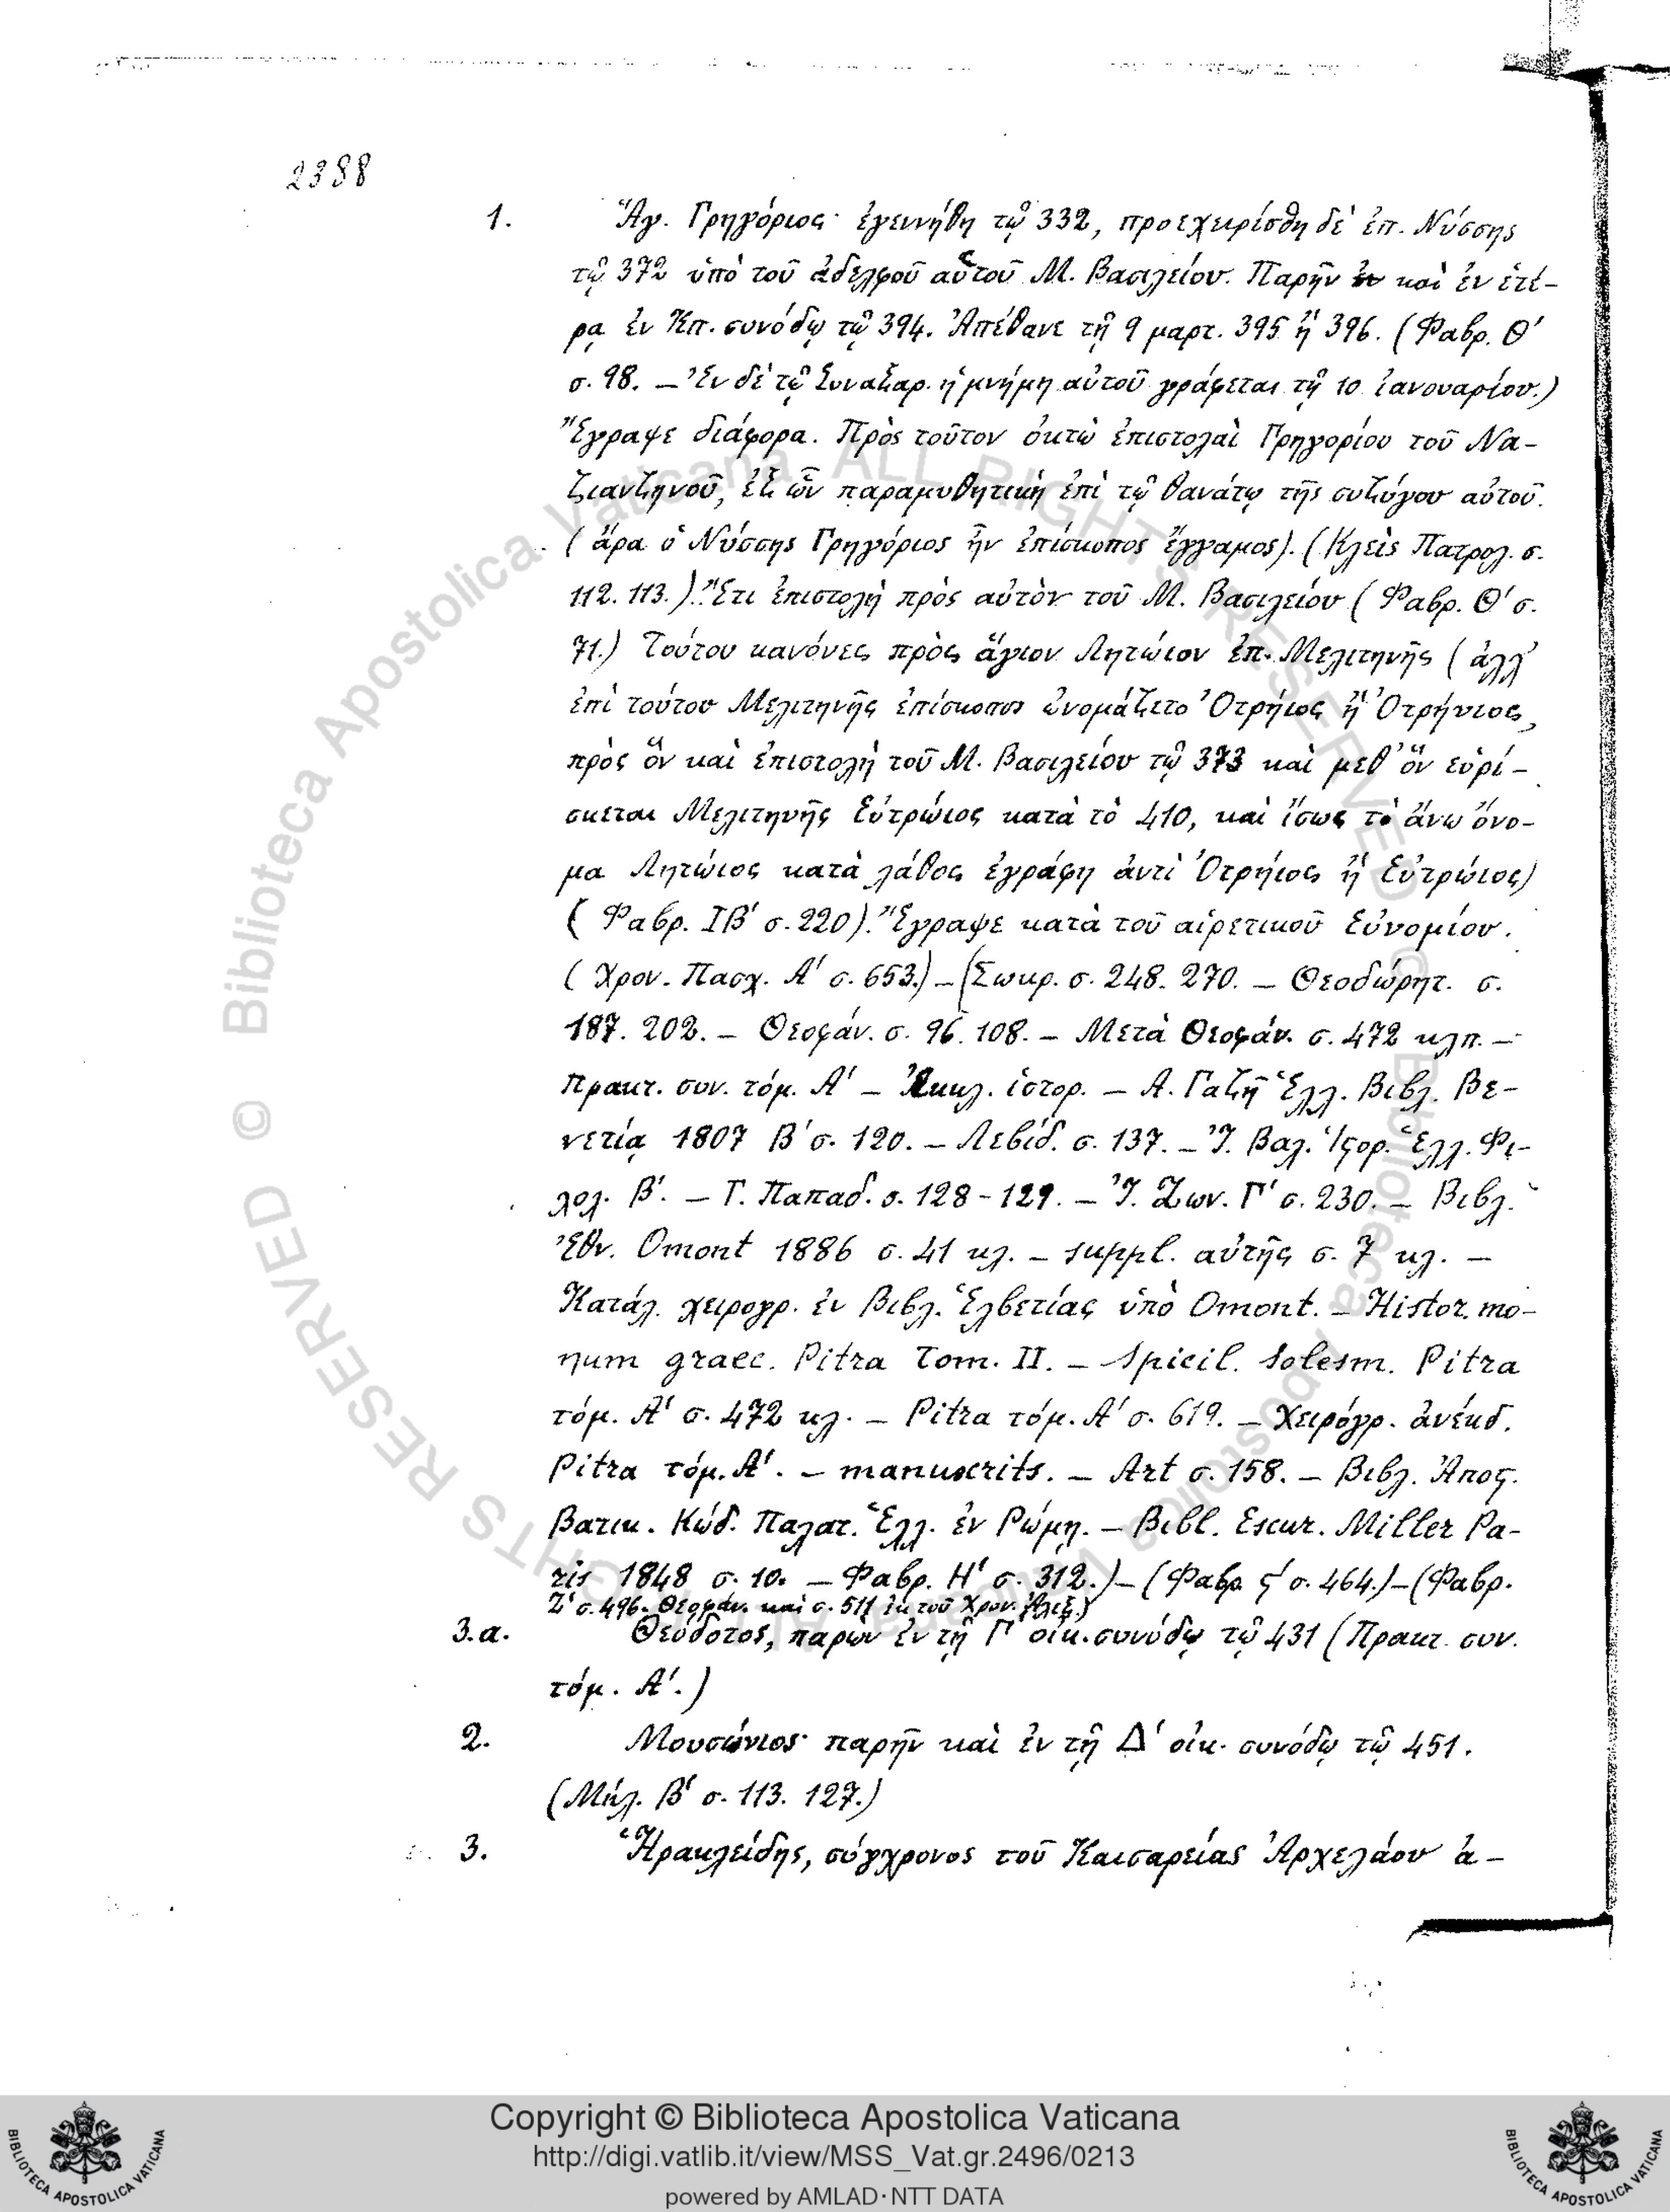 2388
1. Ἅγ. Γρηγόριος· ἐγεννήθη τῷ 332, προεχειρίσθη δὲ ἐπ. Νύσσης
τῷ 372 ὑπὸ τοῦ ἀδελφοῦ αὑτοῦ Μ. Βασιλείου. Παρῆν καὶ ἐν ἑτέ-
ρᾳ ἐν Κπ. συνόδῳ τῷ 394. Ἀπέθανε τῇ 9 μαρτ. 395 ἢ 396. (Φαβρ. Θ΄
σ. 98. – Ἐν δὲ τῷ Συναξαρ. ἡ μνήμη αὐτοῦ γράφεται τῇ 10 ἰανουαρίου.)
Ἔγραψε διάφορα. Πρὸς τοῦτον ὀκτὼ ἐπιστολαὶ Γρηγορίου τοῦ Να-
ζιανζηνοῦ, ἐξ ὧν παραμυθητικὴ ἐπὶ τῷ θανάτῳ τῆς συζύγου αὐτοῦ.
(ἄρα ὁ Νύσσης Γρηγόριος ἦν ἐπίσκοπος ἔγγαμος). (Κλεὶς Πατρολ. σ.
112. 113.). Ἔτι ἐπιστολὴ πρὸς αὐτὸν τοῦ Μ. Βασιλείου (Φαβρ. Θ΄ σ.
71.) Τούτου κανόνες πρὸς ἅγιον Λητώιον ἐπ. Μελιτηνῆς (ἀλλ'
ἐπὶ τούτου Μελιτηνῆς ἐπίσκοπος ὠνομάζετο Ὀτρήιος ἢ Ὀτρήνιος,
πρὸς ὃν καὶ ἐπιστολὴ τοῦ Μ. Βασιλείου τῷ 373 καὶ μεθ' ὃν εὑρί-
σκεται Μελιτηνῆς Εὐτρώιος κατὰ τὸ 410, καὶ ἴσως τὸ ἄνω ὄνο-
μα Λητώιος κατὰ λάθος ἐγράφη ἀντὶ Ὀτρήιος ἢ Εὐτρώιος)
(Φαβρ. ΙΒ΄ σ. 220). Ἔγραψε κατὰ τοῦ αἱρετικοῦ Εὐνομίου.
(Χρον. Πασχ. Α΄ σ. 653.) – (Σωκρ. σ. 248. 270. – Θεοδώρητ. σ.
187. 202. – Θεοφάν. σ. 96. 108. – Μετὰ Θεοφάν. σ. 472 κλπ. –
Πρακτ. συν. τόμ. Α΄ – Ἐκκλ. ἱστορ. – Α. Γαζῆ Ἑλλ. Βιβλ. Βε-
νετίᾳ 1807 Β΄ σ. 120. – Λεβίδ. σ. 137. – Ἰ. Βαλ. Ἱστορ. Ἑλλ. Φι-
λολ. Β΄. – Γ. Παπαδ. σ. 128-129. – Ἰ. Ζων. Γ΄ σ. 230. – Βιβλ.
Ἐθν. Omont 1886 σ. 41 κλ. – suppl. αὐτῆς σ. 7 κλ. –
Κατάλ. χειρογρ. ἐν Βιβλ. Ἑλβετίας ὑπὸ Omont. – Histor. mo-
num graec. Pitra Tom. II. – Spicil. Solesm. Pitra
τόμ. Α΄ σ. 472 κλ. – Pitra τόμ. Α΄ σ. 619. – Χειρόγρ. ἀνέκδ.
Pitra τόμ. Α΄. – manuscrits. – Art σ. 158. – Βιβλ. Ἀποστ.
Βατικ. Κώδ. Παλατ. Ἑλλ. ἐν Ρώμῃ. – Bibl. Escur. Miller Pa-
ris 1848 σ. 10. – Φαβρ. Η΄ σ. 312.) – (Φαβρ. ϛ΄ σ. 464.) – (Φαβρ.
Ζ΄ σ. 496. Θεοφάν. καὶ σ. 511 ἐκ τοῦ Χρον. Ἀλεξ.)
3.α. Θεόδοτος, παρὼν ἐν τῇ Γ΄ οἰκ. συνόδῳ τῷ 431 (Πρακτ. συν.
τόμ. Α΄.)
2. Μουσώνιος· παρῆν καὶ ἐν τῇ Δ΄ οἰκ. συνόδῳ τῷ 451.
(Μήλ. Β΄ σ. 113. 127.)
3. Ἡρακλείδης, σύγχρονος τοῦ Καισαρείας Ἀρχελάου ἀ-
© Biblioteca Apostolica Vaticana ALL RIGHTS RESERVED
© Biblioteca Apostolica Vaticana ALL RIGHTS RESERVED
Copyright © Biblioteca Apostolica Vaticana
http://digi.vatlib.it/view/MSS_Vat.gr.2496/0213
powered by AMLAD·NTT DATA
BIBLIOTECA APOSTOLICA VATICANA
BIBLIOTECA APOSTOLICA VATICANA